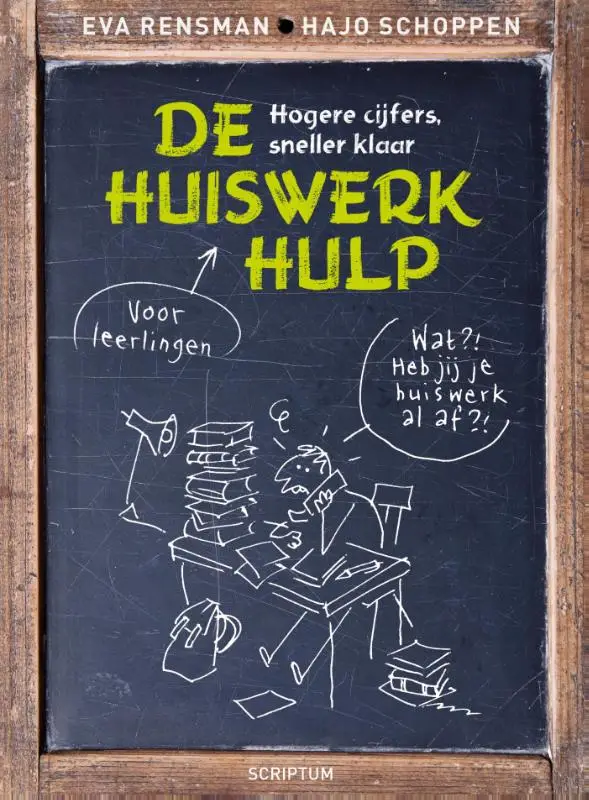 EVA RENSMAN • HAJO SCHOPPEN
DE
Hogere cijfers,
sneller klaar
HUISWERK
HULP
Voor
leerlingen
Wat?!
Heb jij je
huiswerk
al af?!
SCRIPTUM